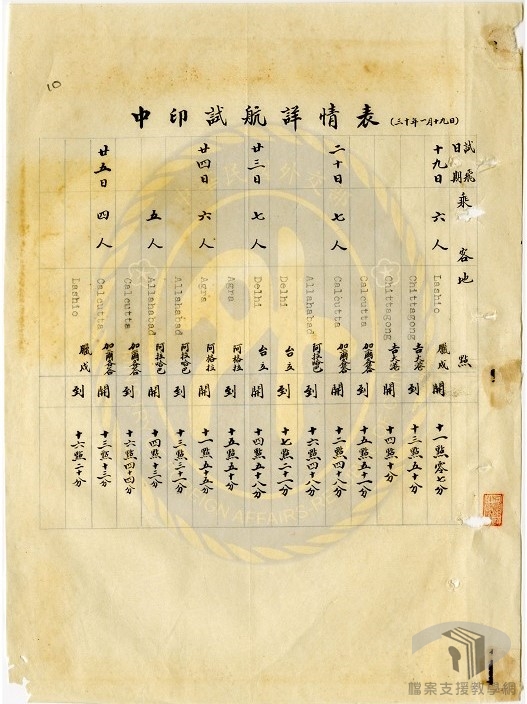 中印試航詳情表 (三十年一月十九日)
試飛日期 乘客 地點
十九日 六人 Lashio 臘戍 開 十一點零七分
Chittagong 吉大港 到 十三點五十分
Chittagong 吉大港 開 十四點十分
Calcutta 加爾各答 到 十五點五十一分
二十日 七人 Calcutta 加爾各答 開 十二點四十分
Allahabad 阿拉哈巴 到 十六點四十八分
Delhi 台立 到 十七點二十一分
廿三日 七人 Delhi 台立 開 十四點五十八分
Agra 阿格拉 到 十五點五十分
廿四日 六人 Agra 阿格拉 開 十一點五十五分
Allahabad 阿拉哈巴 到 十三點三十一分
五人 Allahabad 阿拉哈巴 開 十四點十三分
Calcutta 加爾各答 到 十六點四十四分
廿五日 四人 Calcutta 加爾各答 開 十三點十三分
Lashio 臘戍 到 十六點二十分
10
檔案支援教學網